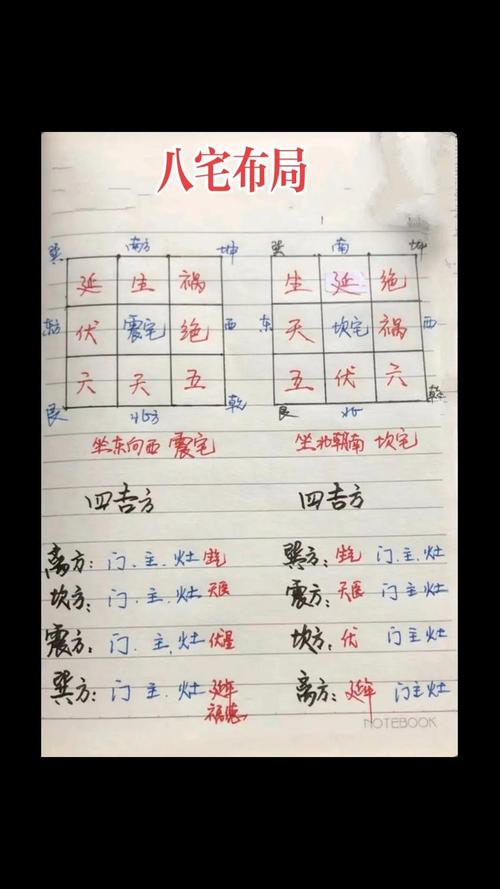 八宅布局
巽 南方 坤
延 生 祸
东方 伏 震宅 绝 西
六 天 五
艮 北方 乾
坐东向西 震宅
四吉方
离方：门.主.灶 生气
坎方：门.主.灶 天医
震方：门.主.灶 伏星
巽方：门.主.灶 延年
福德
巽 南 坤
生 延 绝
东 天 坎宅 祸 西
五 伏 六
艮 北 乾
坐北朝南 坎宅
四吉方
巽方：生气 门主灶
震方：天医 门主灶
坎方：伏 门主灶
离方：延年 门主灶
NOTEBOOK